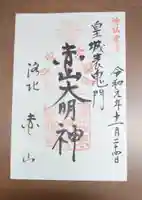 皇城表鬼門
令和元年十一月二十四日
赤山大明神
洛北 赤山